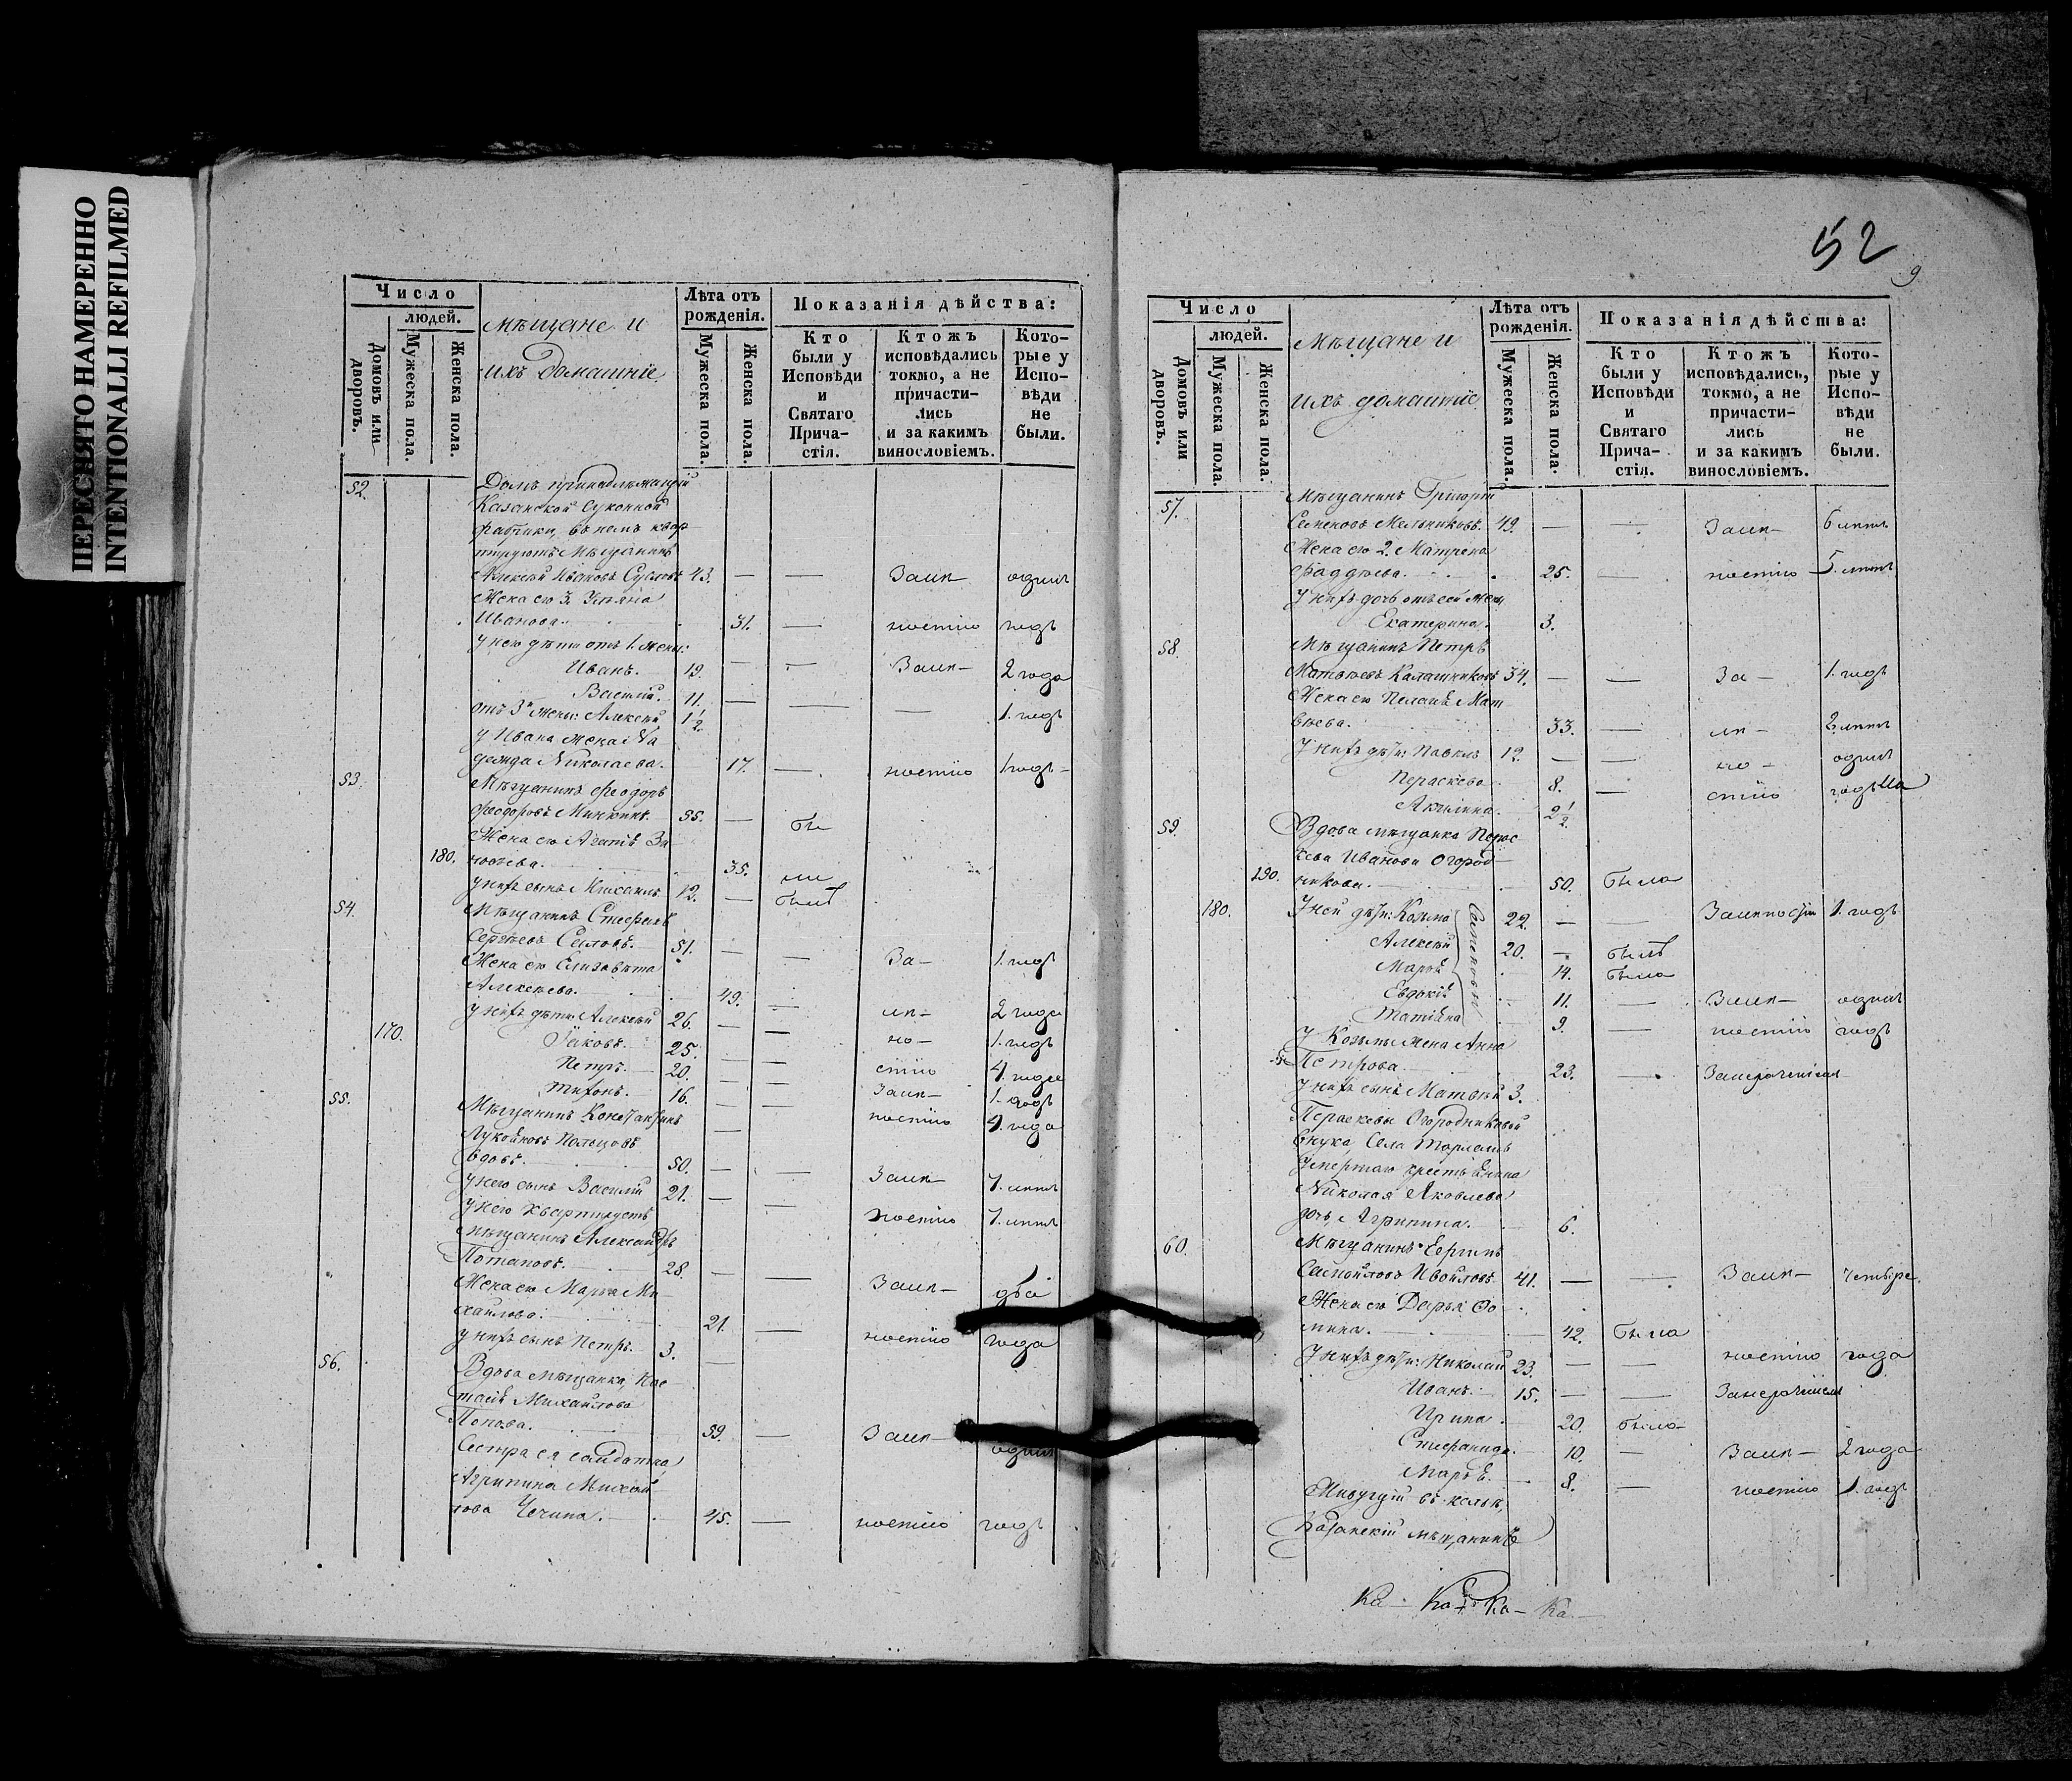 ПЕРЕСНЯТО НАМЕРЕННО
INTENTIONALLI REFILMED
Число
людей.
Домовъ или дворовъ.
Мужеска пола.
Женска пола.
Мѣщане и
ихъ домашніе
Лѣта отъ рожденія.
Мужеска пола.
Женска пола.
Показанія дѣйства:
Кто были у Исповѣди и Святаго Причастія.
Ктожъ исповѣдались токмо, а не причастились и за какимъ винословіемъ.
Которые у Исповѣди не были.
52. Домъ принадлежащій
Казанской Суконной
фабрики, въ немъ квар
тируютъ Мѣщанинъ
Алексѣй Ивановъ 43. — — одинъ
Жена его 3. Ульяна
Иванова. 31. — ностію годъ
у него дѣти отъ 1. жены:
Иванъ. 19. — — 2 года
Василій. 11. — — — 1. годъ
отъ 3й жены: Алексѣй 1 1/2.
у Ивана жена На
дежда Николаева. 17. — ностію 1 годъ
53. Мѣщанинъ Феодоръ
Феодоровъ 55. — бы
Жена его Агафія
180. 35. ли
у нихъ сынъ Михаилъ 12. — былъ
54. Мѣщанинъ Стефанъ
Сергѣевъ 51. — — За— 1. годъ
Жена его Елизавета
Алексѣева. 49. — 2 года
у нихъ дѣти Алексѣй 26. — — но— 1. годъ
170. Іаковъ. 25. — — стію 4. года
Петръ. 20. — — 1. годъ
Тихонъ. 16. — — ностію 4. года
55. Мѣщанинъ Константинъ
вдовъ. 50. — — 7. лѣтъ
у него сынъ Василій 21. — — ностію 7. лѣтъ
у него квартируетъ
мѣщанинъ Александръ
Потаповъ. 28. — — два
Жена его Марѳа Ми
хайлова. 21. — ностію года
у нихъ сынъ Петръ. 3. —
56. Вдова мѣщанка, Нас
тасія Михайлова
Попова. 59. — одинъ
Сестра ея солдатка
Агрипина Михай
лова 45. — ностію годъ
52
9
Число
людей.
Домовъ или дворовъ.
Мужеска пола.
Женска пола.
Мѣщане и
ихъ домашніе
Лѣта отъ рожденія.
Мужеска пола.
Женска пола.
Показанія дѣйства:
Кто были у Исповѣди и Святаго Причастія.
Ктожъ исповѣдались, токмо, а не причастились и за какимъ винословіемъ.
Которые у Исповѣди не были.
57. Мѣщанинъ Григорій
Семеновъ Мельниковъ. 49. — — 6 лѣтъ
Жена его 2. Матрена
Фаддѣева. 25. — ностію 5. лѣтъ
у нихъ дочь отъ сей жены
Екатерина. 3.
58. Мѣщанинъ Петръ
Матвѣевъ Калашниковъ 34. — — За— 1. годъ
Жена его Пелагія Мат
вѣева. 33. — 2. лѣтъ
у нихъ дѣти: Павелъ 12. — — но— одинъ
Параскева. 8. — стію
Акилина. 2 1/2.
59. Вдова мѣщанка Парас
кева Иванова Огород
190. никова. 50. была
180. У ней дѣти: Козьма 22. — — 1. годъ
Алексѣй 20. — былъ
Марія 14. была
Евдокія 11. — одинъ
Татіана 9. — ностію годъ
У Козьмы жена Анна
Петрова. 23. —
У нихъ сынъ Матвѣй 3.
Параскевы Огородниковой
внука, Села
умершаго крестьянина
Николая Яковлева
дочь, Агрипина. 6.
60. Мѣщанинъ
Самойловъ 41. — — четыре
Жена его Дарья Ѳо
мина. 42. была
У нихъ дѣти: Николай 23. — — ностію года
Иванъ. 15. — —
Ирина. 20. была
Стефанида. 10. — 2 года
Марія. 8. — ностію 1. годъ
Живущій въ
Казанскій мѣщанинъ